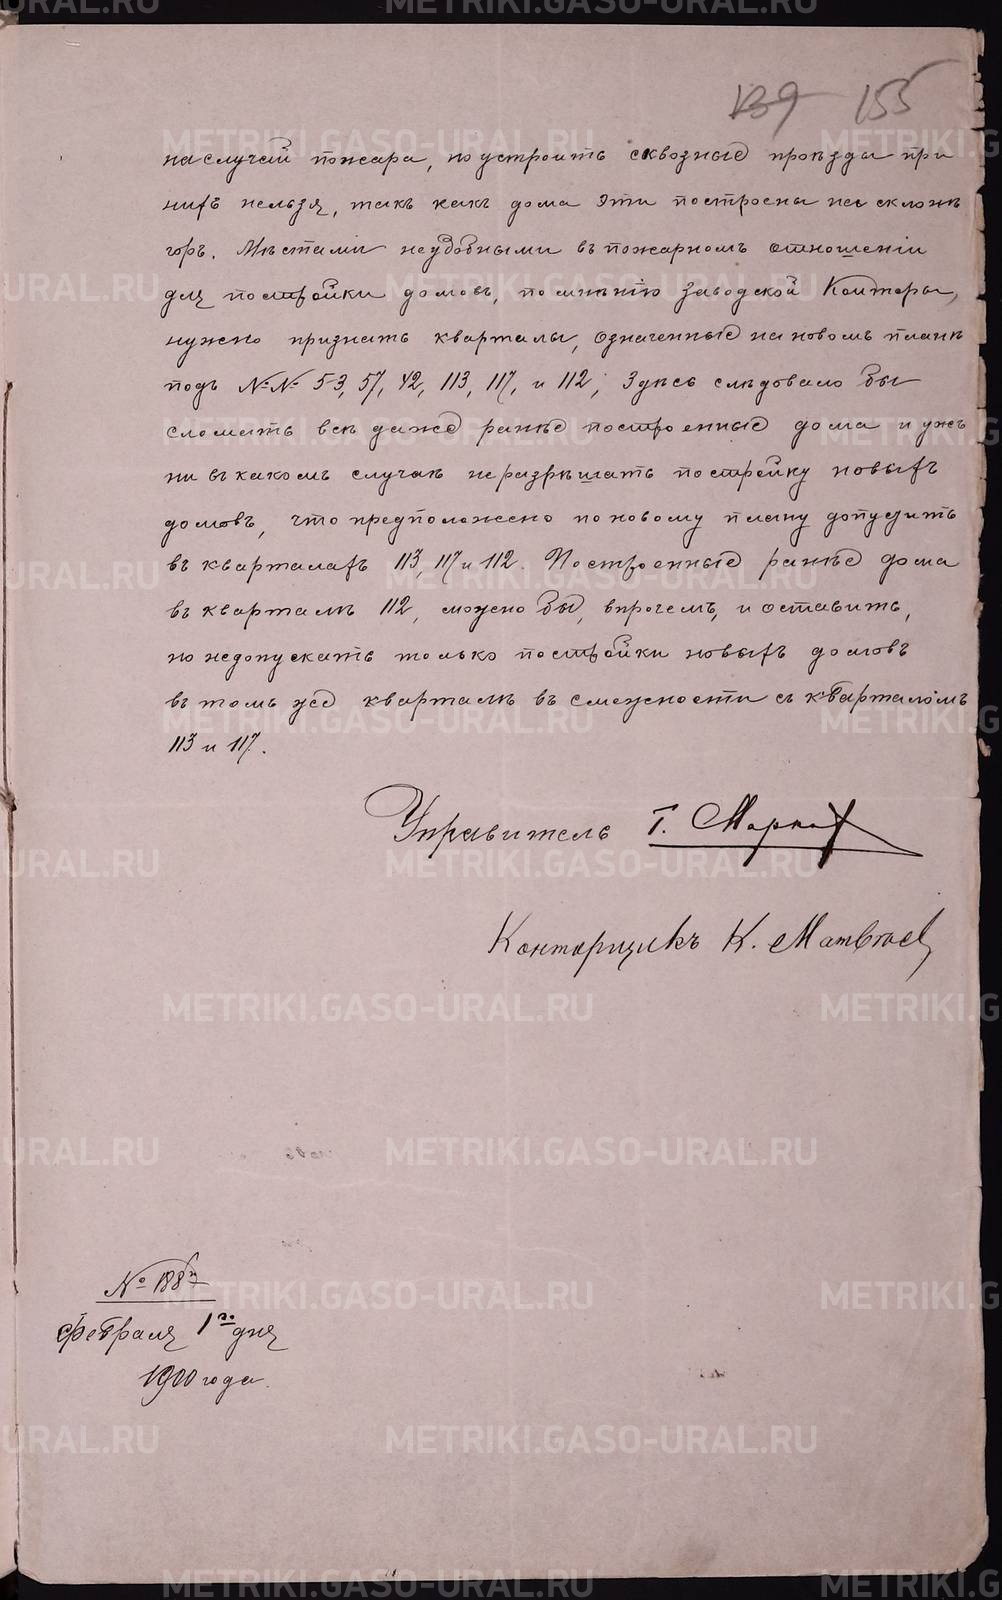 139 155
на случай пожара, но устроить сквозные проѣзды при
нихъ нельзя, такъ какъ дома эти построены на склонѣ
горъ. Мѣстами неудобными въ пожарномъ отношеніи
для постройки домовъ, по мнѣнію Заводской Конторы,
нужно признать кварталы, означенные на новомъ планѣ
подъ №№ 53, 57, 42, 113, 117, и 112; Здѣсь слѣдовало бы
сломать всѣ даже ранѣе построенные дома и ужъ
ни въ какомъ случаѣ не разрѣшать постройку новыхъ
домовъ, что предположено по новому плану допустить
въ кварталахъ 113, 117 и 112. Построенные ранѣе дома
въ кварталѣ 112, можно бы, впрочемъ, и оставить,
но недопускать только постройки новыхъ домовъ
въ томъ же кварталѣ въ смежности съ кварталомъ
113 и 117.
Управитель Г. Марков
Конторщикъ К. Матвѣев
№ 188
Февраля 1го дня
1900 года.